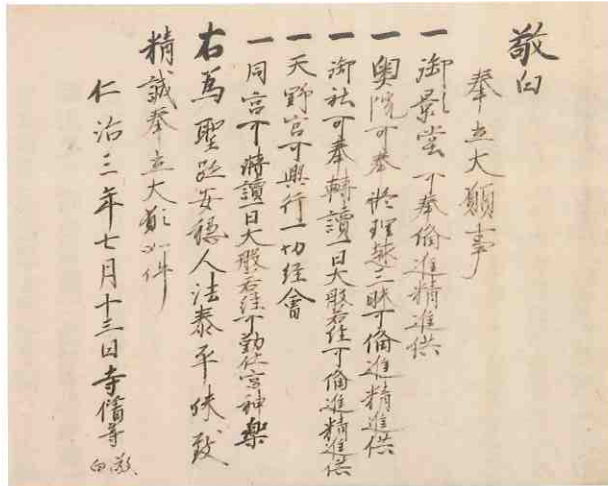 敬白
奉立大願事
一御影堂可奉備進精進供
一奥院可奉於理趣三昧可備進精進供
一御社可奉轉讀一日大般若経可備進精進供
一天野宮可興行一切経會
一同宮可轉讀一日大般若経可勤仕宮神樂
右為聖跡安穏人法泰平殊致
精誠奉立大願如件
仁治三年七月十三日寺僧等
敬白